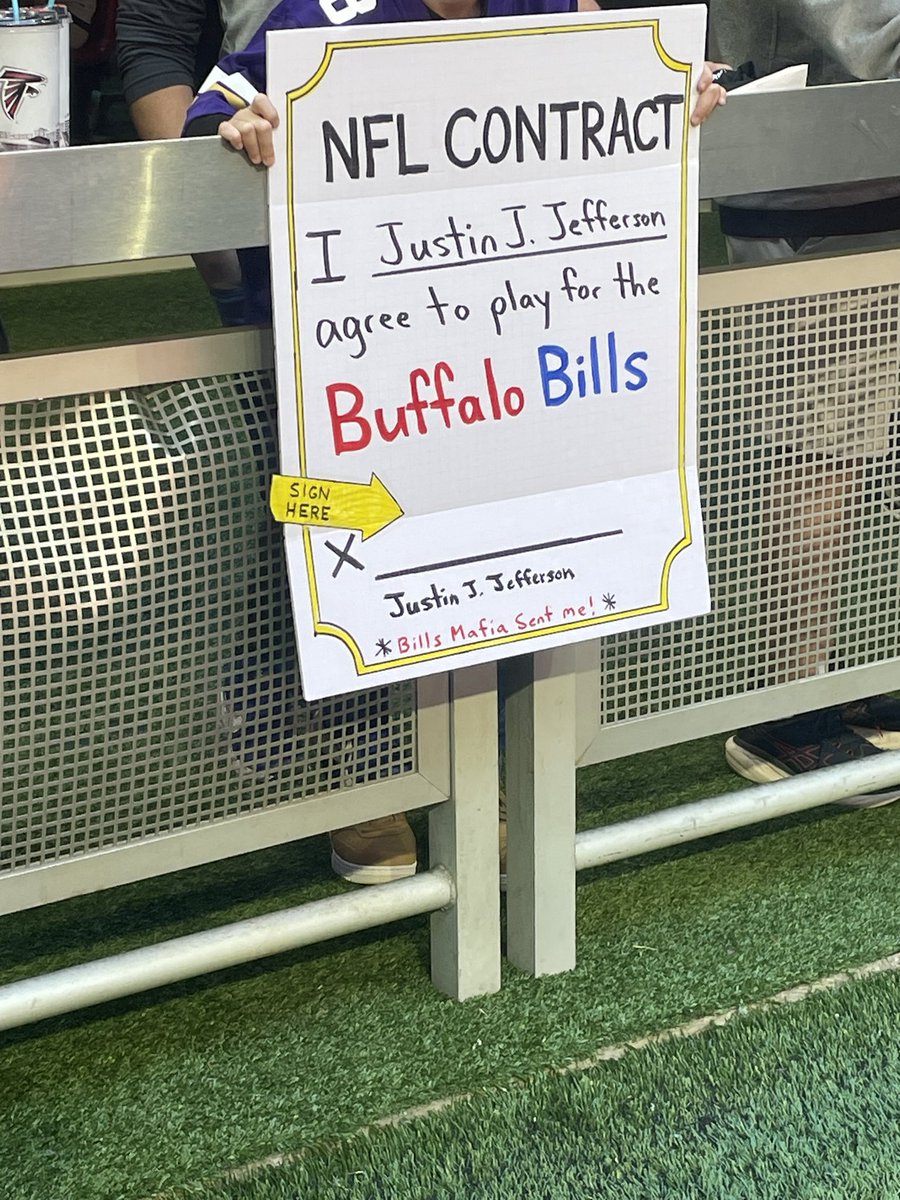 NFL CONTRACT
I Justin J. Jefferson
agree to play for the
Buffalo Bills
SIGN
HERE
X
Justin J. Jefferson
*Bills Mafia Sent me!*